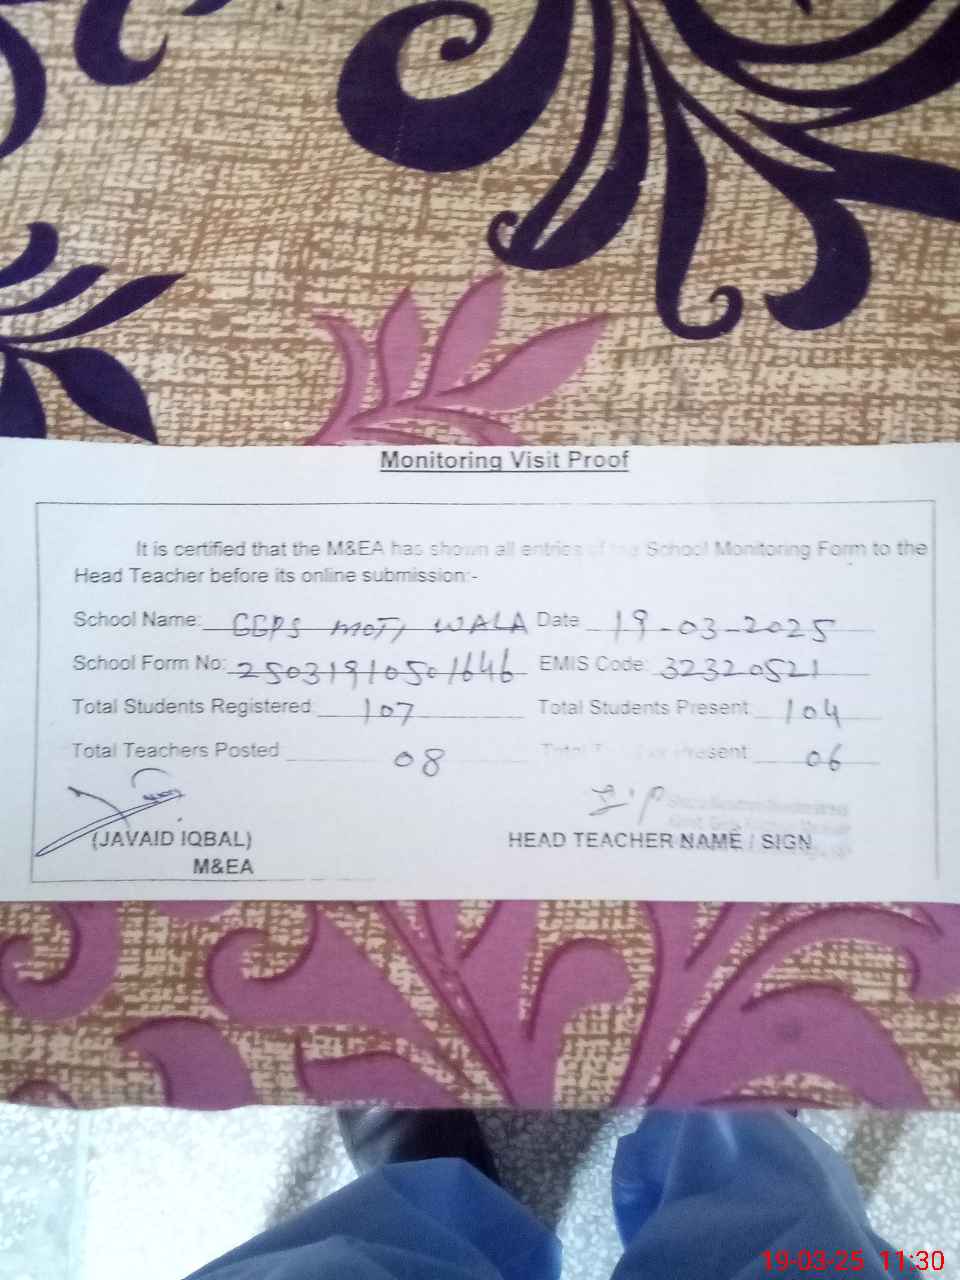 Monitoring Visit Proof
It is certified that the M&EA has shown all entries of the School Monitoring Form to the
Head Teacher before its online submission:-
School Name: GGPS MOTI WALA Date 19-03-2025
School Form No: 25031910501646 EMIS Code: 32320521
Total Students Registered 107 Total Students Present 104
Total Teachers Posted 08 Total Present 06
(JAVAID IQBAL) HEAD TEACHER NAME / SIGN
M&EA
19-03-25 11:30